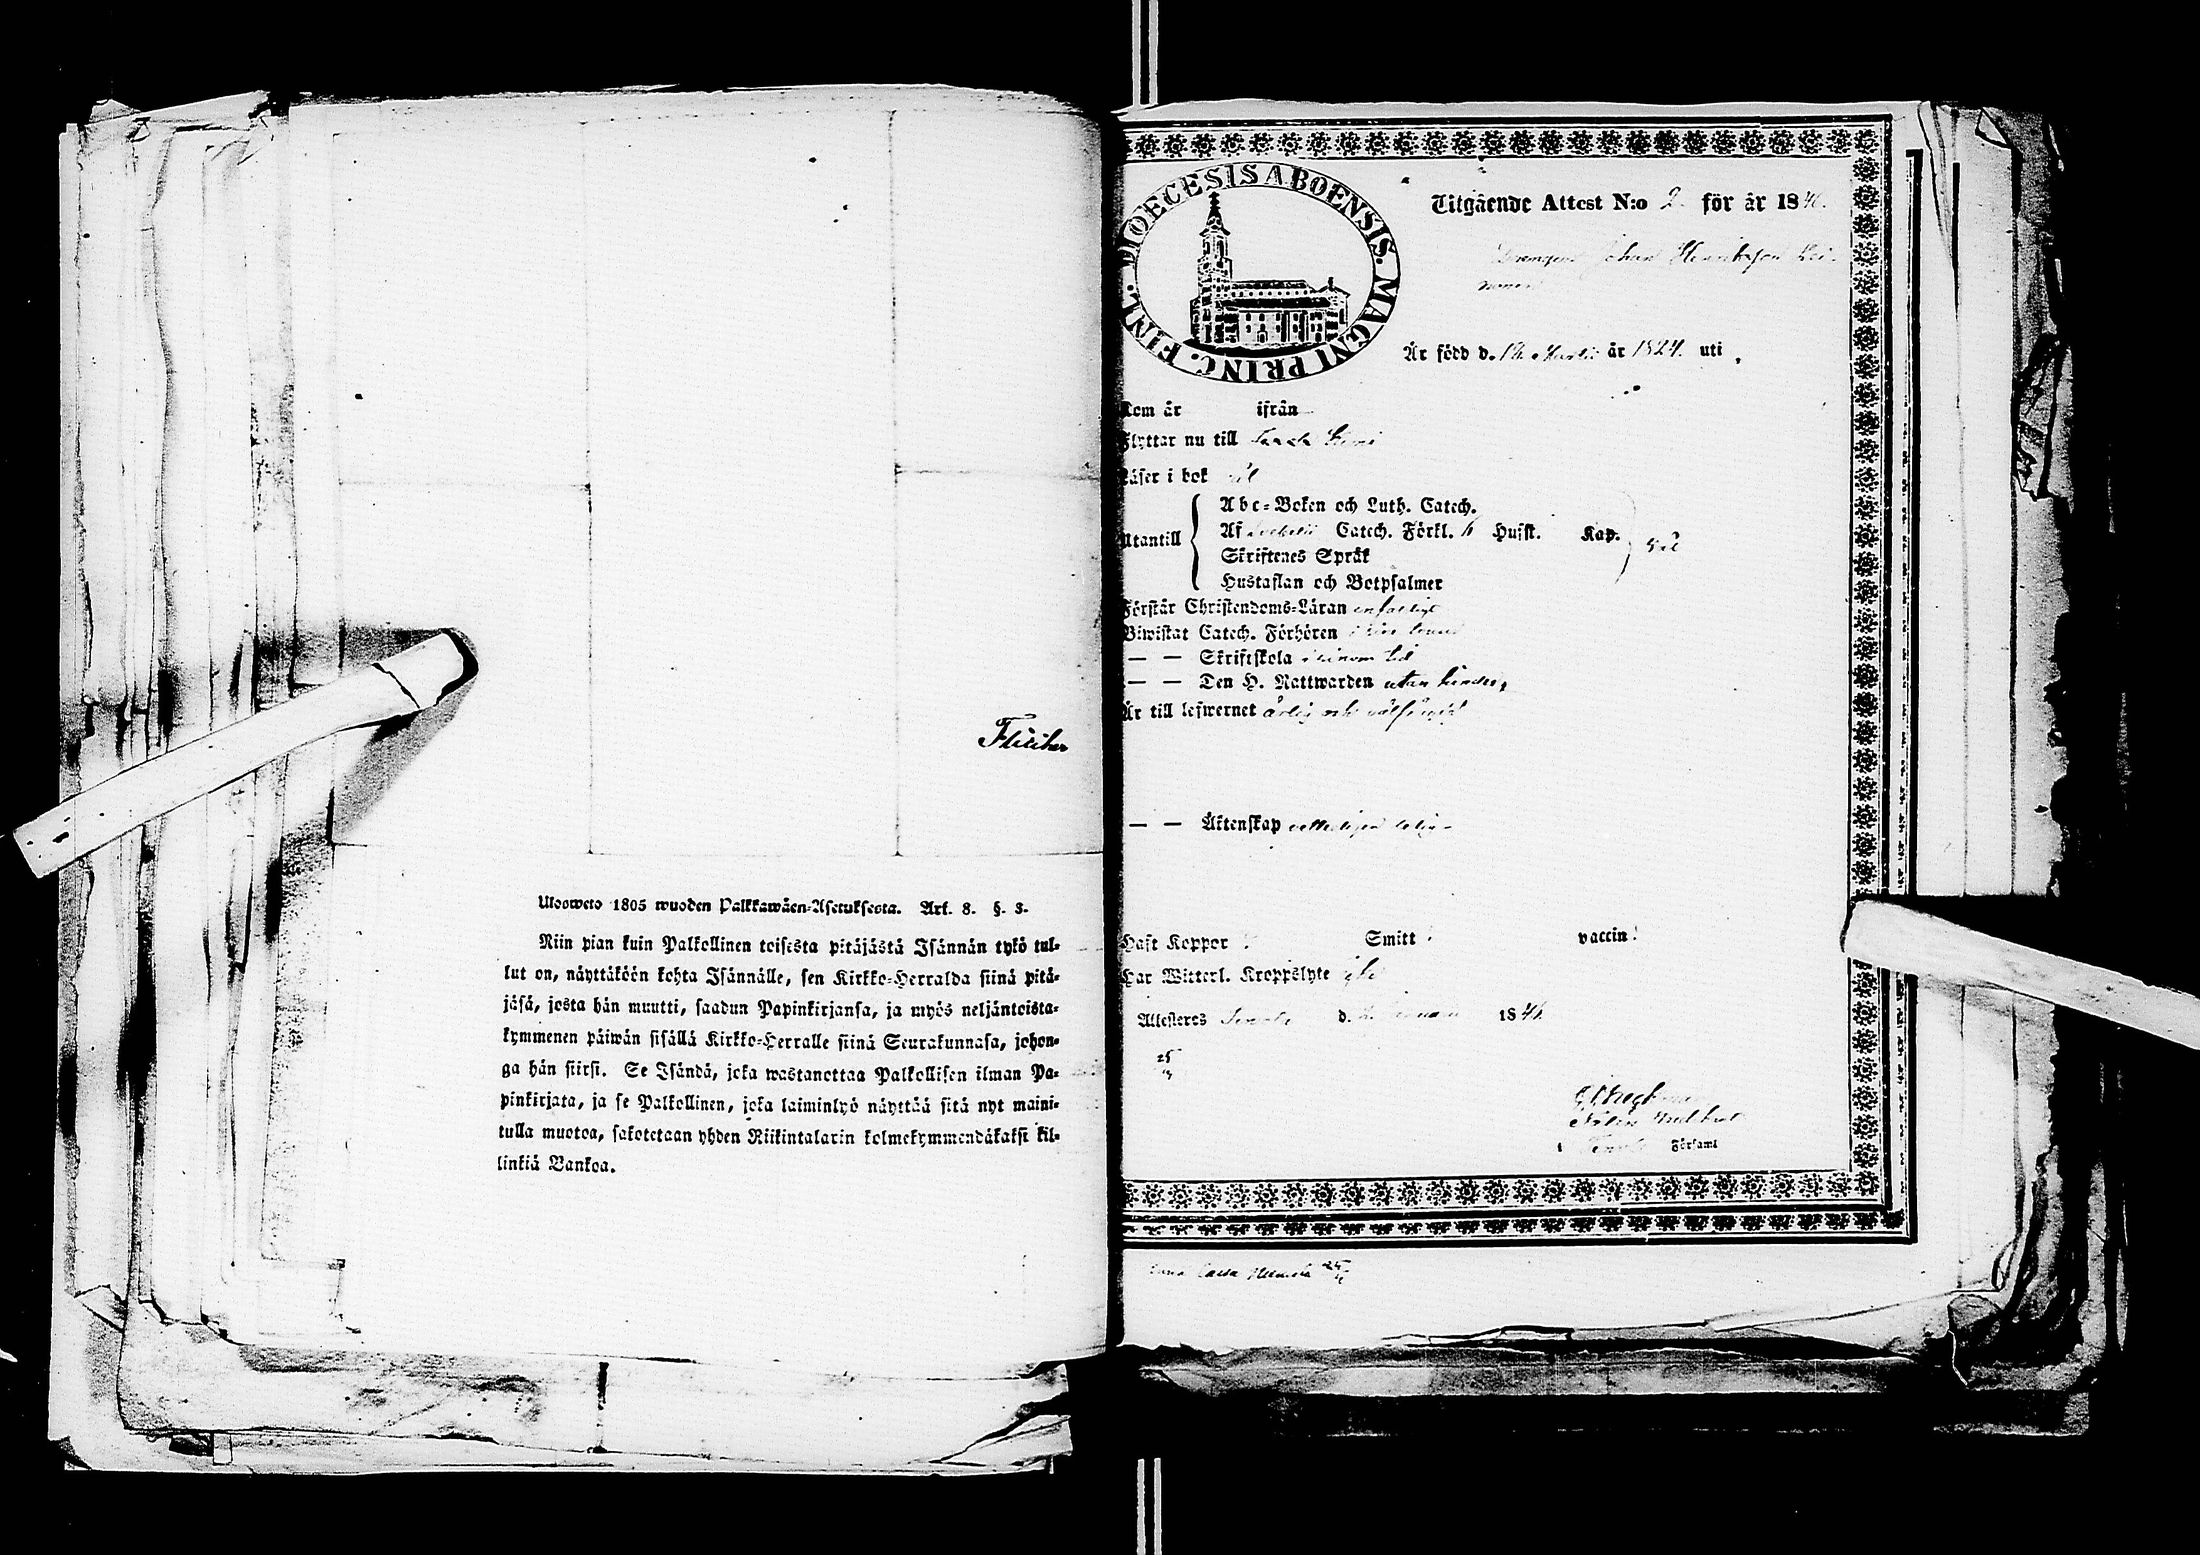 Ulosweto 1805 wuoden Palkkawäen-Asetuksesta. Art. 8. §. 3.
Niin pian kuin Palkollinen toisesta pitäjästä Isännän tykö tul-
lut on, näyttäköön kohta Isännälle, sen Kirkko-Herralda siinä pitä-
jäsä, josta hän muutti, saadun Papinkirjansa, ja myös neljäntoista-
kymmenen päiwän sisällä Kirkko-Herralle siinä Seurakunnasa, johon-
ga hän siirsi. Se Isändä, joka wastanottaa Palkollisen ilman Pa-
pinkirjata, ja se Palkollinen, joka laiminlyö näyttää sitä nyt maini-
tulla muotoa, sakotetaan yhden Riikintalarin kolmekymmendäkaksi kil-
linkiä Bankoa.
DIOECESIS ABOENSIS. MAGNI PRINC. FINL.
Utgående Attest N:o 2. för år 1846.
Drengen Johan Henriksson
Är född d. 12 Martii år 1824. uti
Kom år ifrån
Flyttar nu till
Läser i bok väl
Utantill
Abc-Boken och Luth. Catech.
Af Catech. Förkl. Husst. Kap.
Skriftenes Språk
Hustaflan och Botpsalmer
väl
Förstår Christendoms-Läran enfaldigt
Biwistat Catech. Förhören
— — Skriftskola i sinom tid
— — Den H. Nattwarden utan hinder,
Är till lefwernet ärlig och välfrejdad
— — Äktenskap ledig
Haft Koppor Smitt vaccin.
Har Witterl. Kroppslyte
Attesteras d. 1846.
Församl